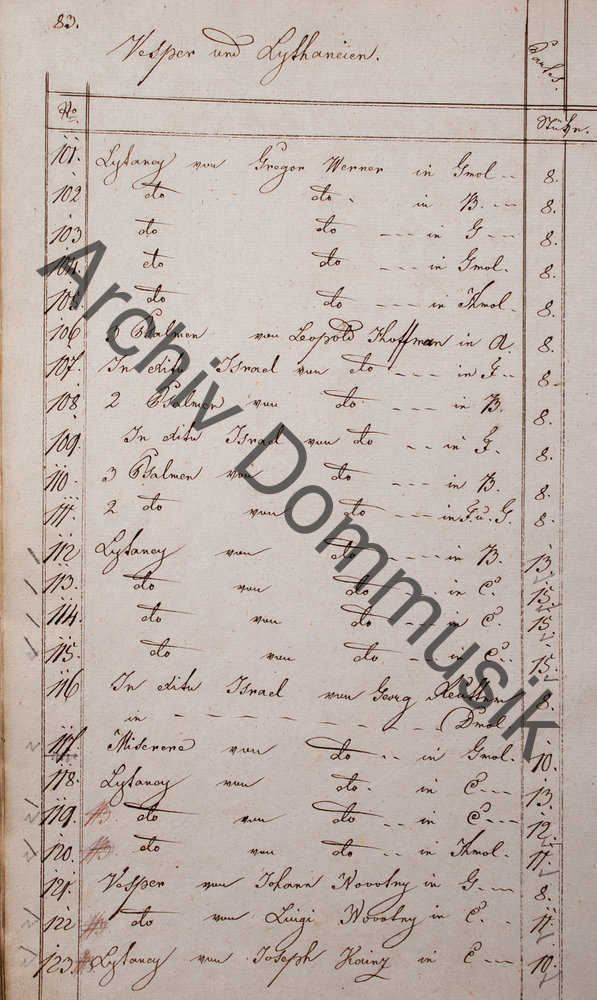 83.
Vesper und Lythaneien.
Partes.
No
Stücke.
101. Lytaney von Gregor Werner in Gmol -- 8.
102 do do - in B. -- 8.
103 do do --- in G -- 8.
104. do do --- in Gmol. 8.
105. do do --- in Amol. 8.
106 3 Psalmen von Leopold Hoffman in A. 8.
107. In exitu Israel von do --- in F -- 8
108. 2 Psalmen von do --- in B. 8.
109. In exitu Israel von do -- in F. 8.
110. 3 Psalmen von do --- in B. 8.
111. 2 do von do --- in F. u. G. 8.
112 Lytaney von do --- in B. 13.
113. do von do --- in C. 15.
114 do von do --- in C. 15.
115. do von do --- in C -- 15.
116 In exitu Israel von Georg Reutter 8.
in - - - - - - - Dmol
117. Miserere von do -- in Gmol. 10.
118. Lytaney von do. in C --- 13.
119. #3 do von do -- in C --- 12.
120. #3 do von do -- in Amol. 11.
121. Vesper von Johann Novotny in G. -- 8.
122 #3 do von Luigi Novotny in C. - 11.
123. #3 Lytaney von Joseph Kainz in C --- 10.
Archiv Dommusik